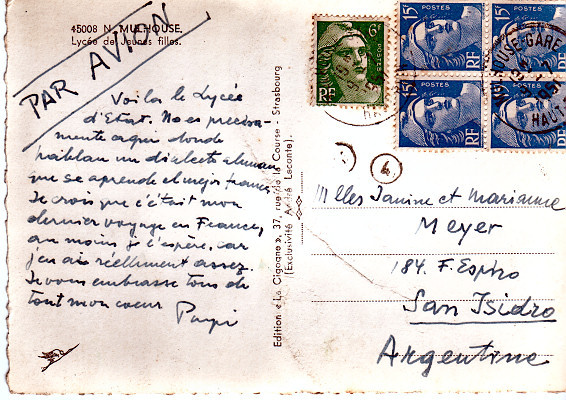 45008 N. MULHOUSE.
Lycée de Jeunes filles.
PAR AVION
Voila le Lycée
d'Etat. No es precisa-
mente aqui donde
hablan un dialecto aleman
que se aprende el mejor frances
Je crois que c'était mon
dernier voyage en France,
au moins je l'espère, car
j'en ai réellement assez.
Je vous embrasse tous de
tout mon coeur
Papi
Edition «La Cigogne», 37, rue de la Course - Strasbourg
(Exclusivité André Leconte).
6F
POSTES
RF
15F
POSTES
RF
15F
POSTES
RF
RF
RF
MULHOUSE-GARE
1951
HAUT
4
Mlles Janine et Marianne
Meyer
184. F. Espiro
San Isidro
Argentine